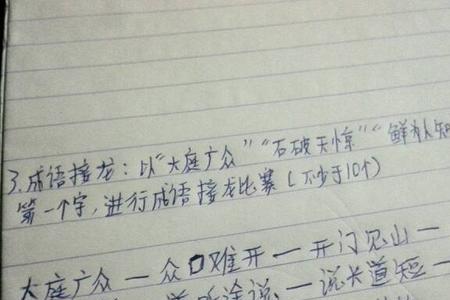 3.成语接龙：以“大庭广众”“石破天惊”“鲜为人知
第一个字,进行成语接龙比赛(不少于10个)
大庭广众一众口难开一开门见山一
道听途说一说长道短一